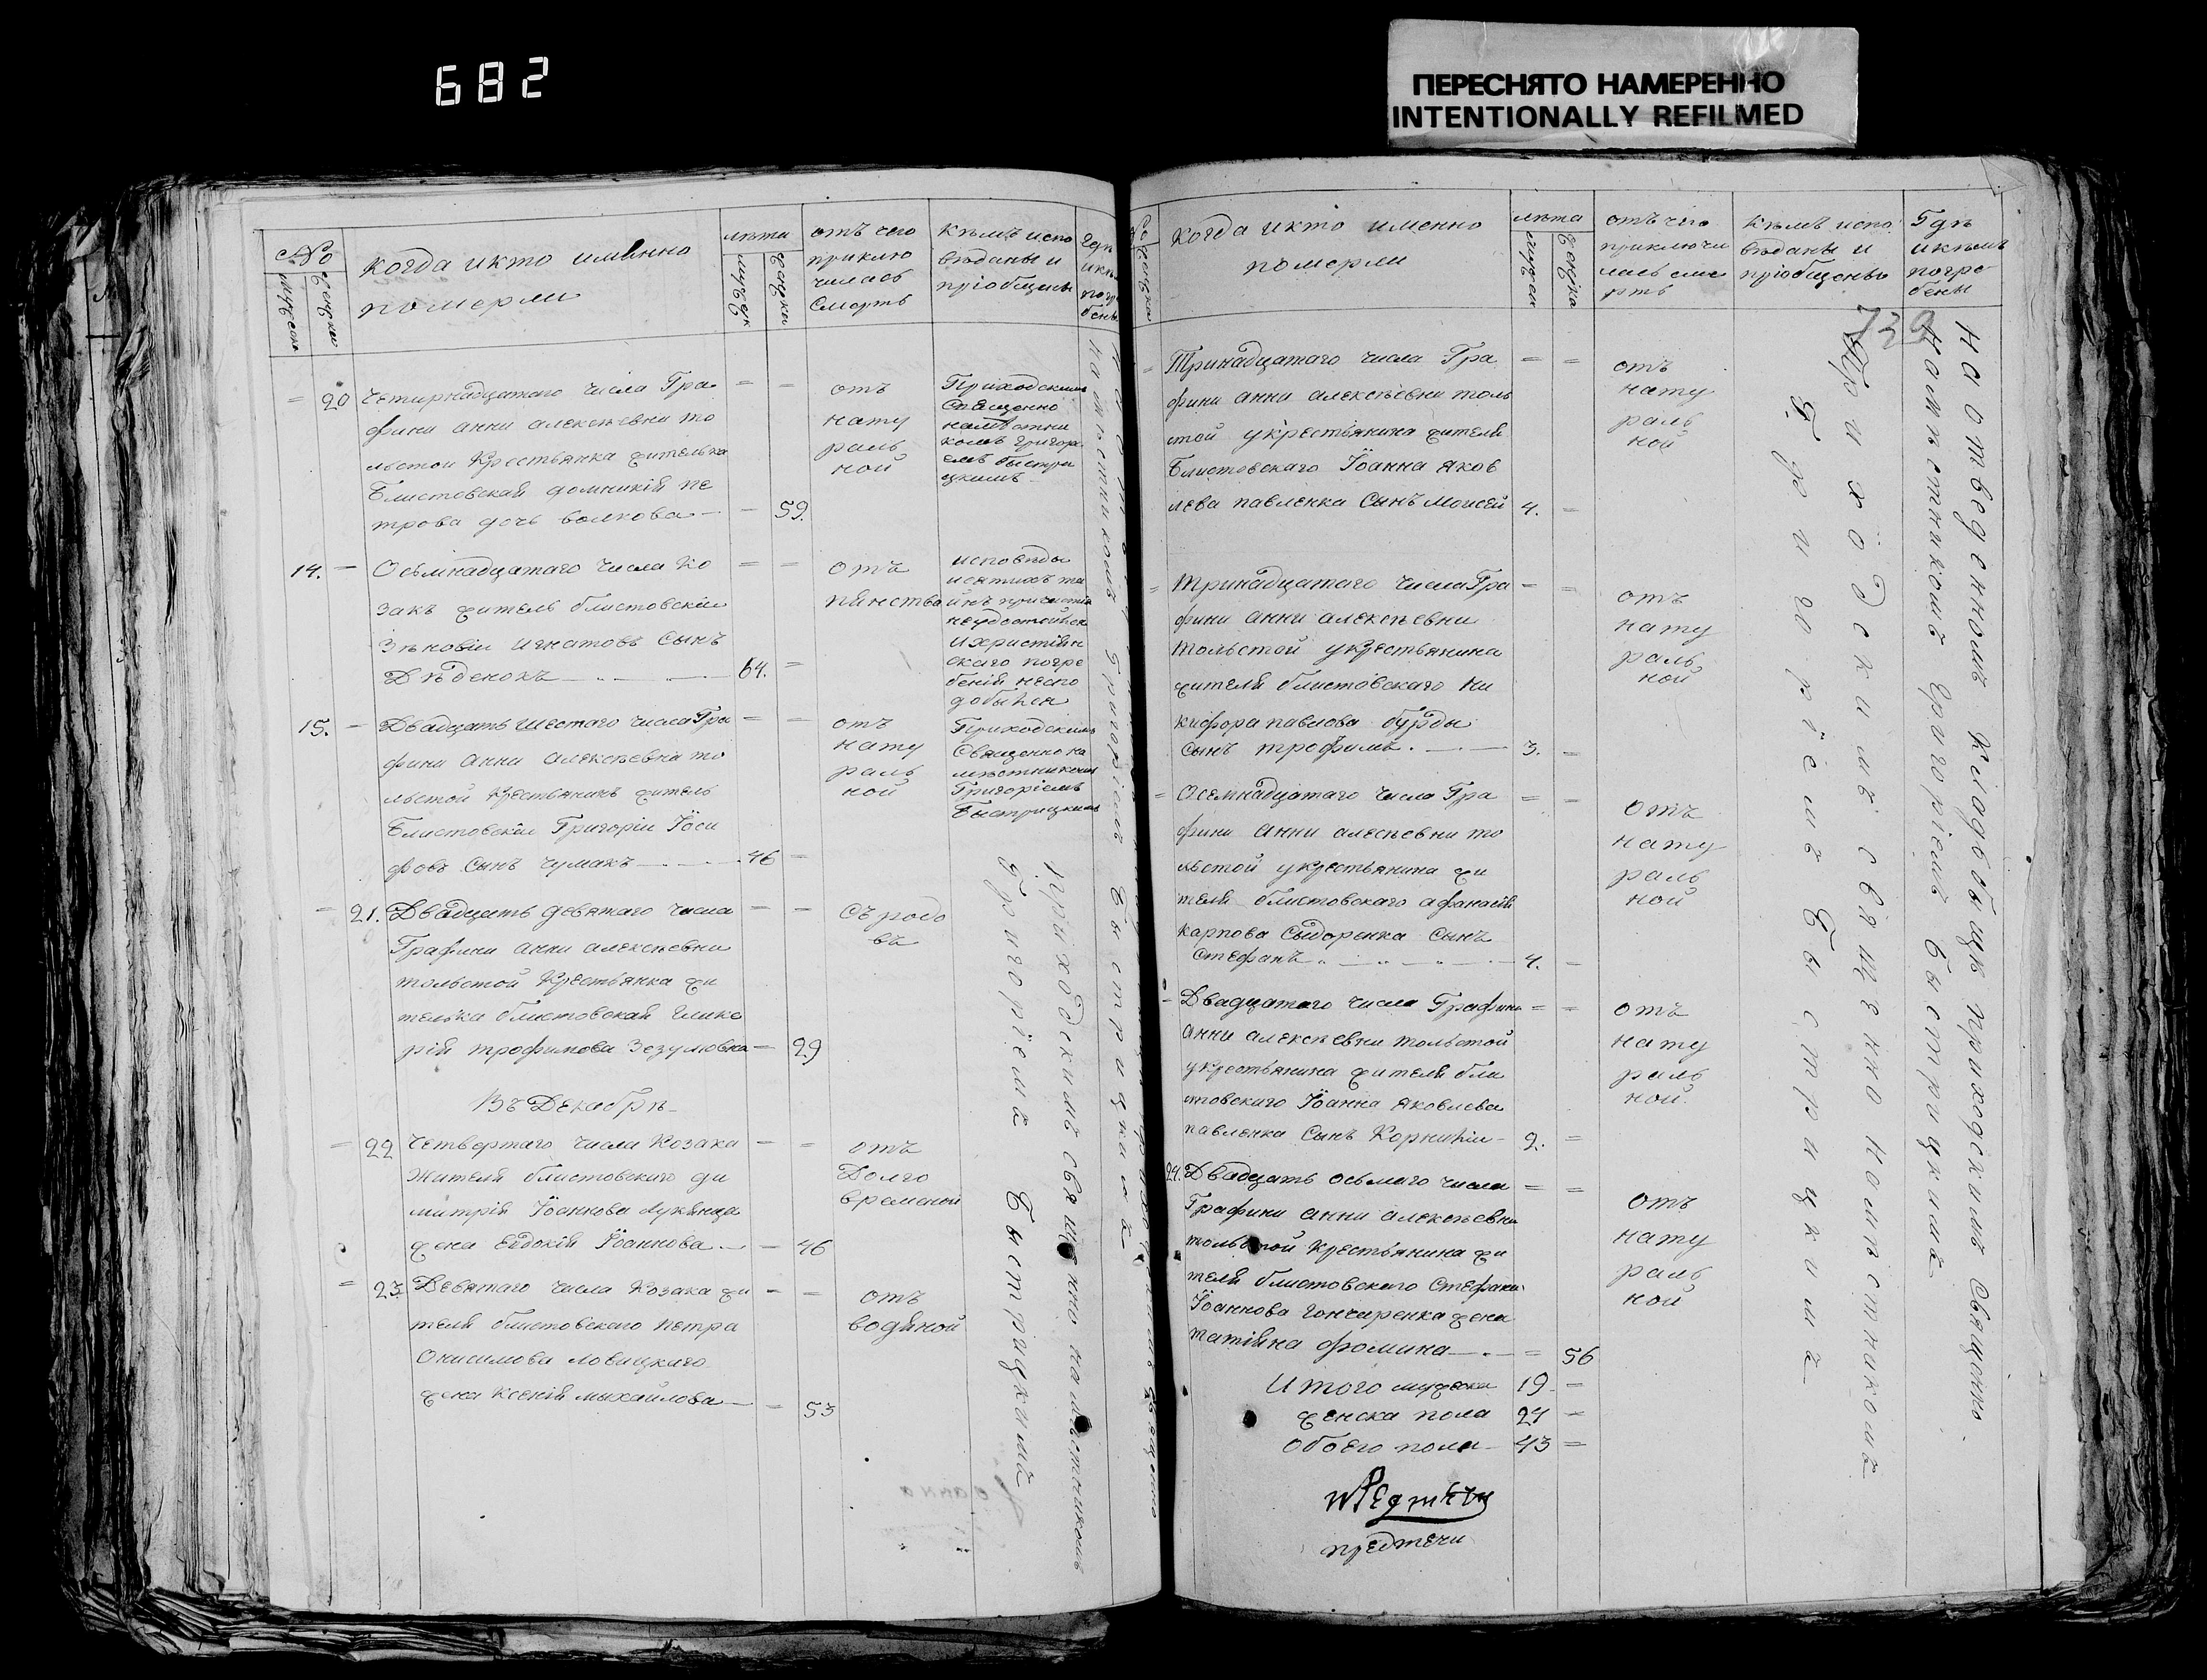 682
ПЕРЕСНЯТО НАМЕРЕННО
INTENTIONALLY REFILMED
№
мужеск
женско
когда и кто именно
померли
лѣта
мужеск
женски
отъ чего
приклю
чилась
смерть
Кѣмъ испо
вѣданы и
пріобщены
20
Четирнадцатаго числа Гра
фини анни алексѣевни то
льстой Крестьянка жителька
блистовская домникія пе
трова дочь волкова
59.
отъ
нату
раль
ной
Приходскимъ
Священно
намѣстни
комъ Григорі
емъ быстри
цкимъ
14.
Осьмнадцатаго числа Ко
закъ житель блистовскій
Зѣновій игнатовъ сынъ
Дѣденокъ
64.
отъ
пянства
исповѣды
и святихъ та
йнъ причастія
неудостоился
и христіян
скаго погре
бенія неспо
добыленъ
15.
Двадцать шестаго числа Гра
фини анни алексѣевни то
льстой крестьянинъ житель
Блистовскій Григорій Іоси
фовъ сынъ чумакъ
46
отъ
нату
раль
ной
Приходскимъ
Священно на
мѣстникомъ
Григоріемъ
Быстрицкимъ
21.
Двадцать девятаго числа
Графини анни алексѣевни
тольстой Крестьянка жи
телька блистовская глике
рія трофимова Зезулювна
29
съ родо
въ
Въ Декабрѣ
22
Четвертаго числа Козака
жителя блистовскаго ди
митрія Іоаннова лукянца
жена Евдокія Іоаннова
46
отъ
Долго
временой
23
Девятаго числа Козака жи
теля блистовскаго Петра
Онисимова ловицкаго
жена Ксенія мыхайлова
53
отъ
водяной
приходскимъ священно намѣстникомъ
Григоріемъ Быстрицкимъ
когда и кто именно
померли
лѣта
мужеск
женска
отъ чего
приключи
лась сме
рть
Кѣмъ испо
вѣданы и
пріобщены
Гдѣ
и кѣмъ
погре
бены
739
Тринадцатаго числа Гра
фини анни алексѣевни толь
стой у крестьянина жителя
Блистовскаго Іоанна яков
лева павленка Сынъ Моисей
4.
отъ
нату
раль
ной
Тринадцатаго числа Гра
фини анни алексѣевни
тольстой у крестьянина
жителя блистовскаго ни
кифора павлова бурды
сынъ трофимъ
3.
отъ
нату
раль
ной
Осемнадцатаго числа Гра
фини анни алексѣевни то
льстой у крестьянина жи
теля блистовскаго афанасія
карпова Сыдоренка Сынъ
Стефанъ
4.
отъ
нату
раль
ной
Двадцатаго числа Графини
анни алексѣевни тольстой
у крестьянина жителя бли
стовскаго Іоанна Яковлева
павленка Сынъ Корнилій
2.
отъ
нату
раль
ной
24.
Двадцать осьмаго числа
Графини анни алексѣевни
тольстой крестьянина жи
теля блистовскаго Стефана
Іоаннова гончаренка жена
татіяна фомина
56
отъ
нату
раль
ной
Итого мужеска 19
женска пола 24
обоего пола 43
предтечи
Приходскимъ священно намѣстникомъ
Григоріемъ Быстрицкимъ
На отведенномъ кладбыщѣ приходскимъ Священно
намѣстникомъ Григоріемъ Быстрицкимъ